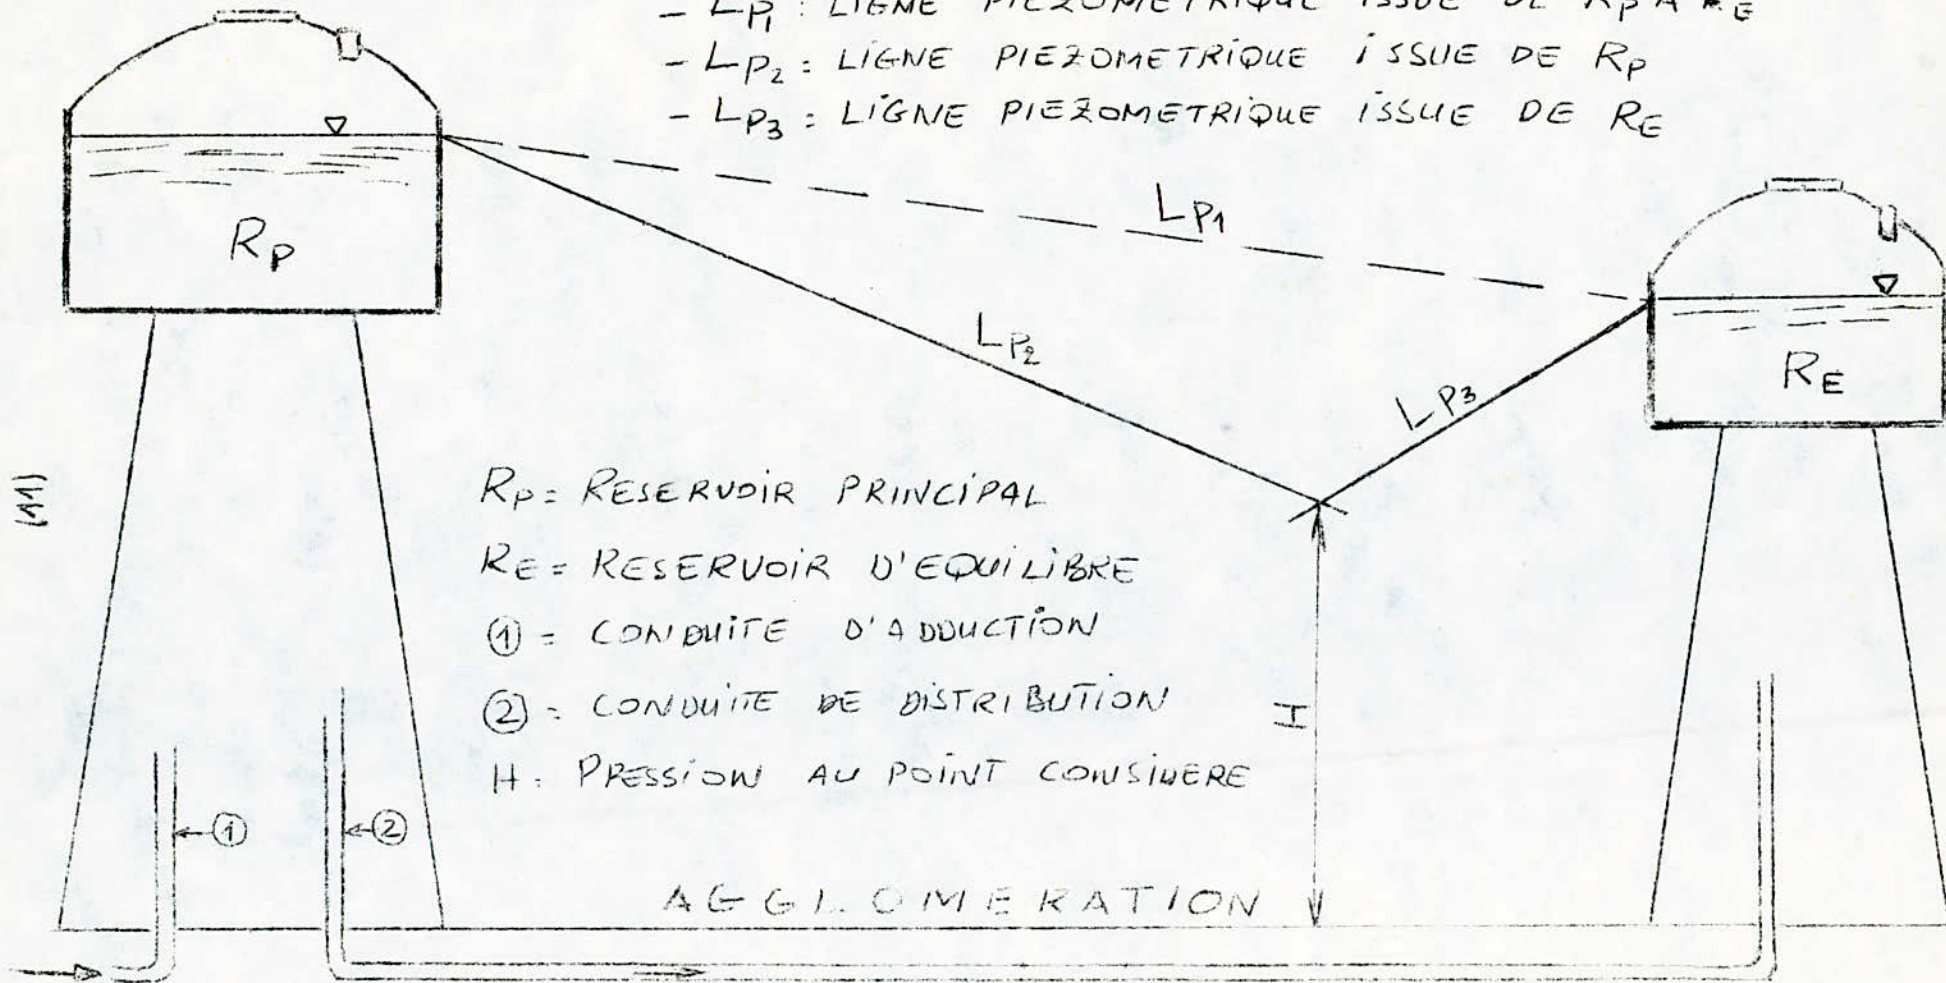 - LP1 : LIGNE PIEZOMETRIQUE ISSUE DE RP A RE
- LP2 : LIGNE PIEZOMETRIQUE ISSUE DE RP
- LP3 : LIGNE PIEZOMETRIQUE ISSUE DE RE
LP1
RP
LP2
RE
LP3
(11)
RP = RESERVOIR PRINCIPAL
RE = RESERVOIR D'EQUILIBRE
① = CONDUITE D'ADDUCTION
② = CONDUITE DE DISTRIBUTION
H
H : PRESSION AU POINT CONSIDERE
① ②
AGGLOMERATION